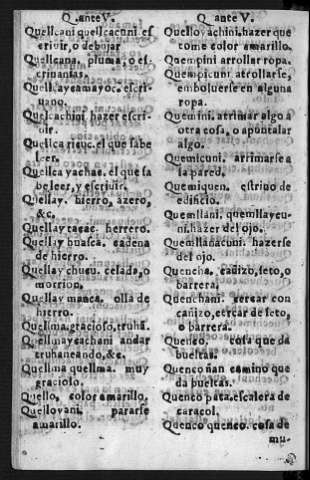 Q. ante V.
Quellcani quellcacuni. es
criuir, o debujar
Quellcana, pluma, o es-
criuanias.
Quellcaycamayoc. escri-
uano.
Quelcachini hazer escri-
uir.
Quellca ricuc. el que sabe
leer.
Quellca yachac. el que sa
be leer, y escriuir.
Quellay. hierro, azero,
&c.
Quellay tacac. herrero.
Quellay huasca. cadena
de hierro.
Quellay chucu. celada, o
morrion.
Quellay manca. olla de
hierro.
Quellma. gracioso, truhã.
Quellmaycachani andar
truhaneando, &c.
Quellma quellma. muy
gracioso.
Quello, color amarillo.
Quellovani. pararse
amarillo.
Q ante V.
Quellovachini. hazer que
come color amarillo.
Quempini arrollar ropa.
Quempicuni arrollarse,
emboluerse en alguna
ropa.
Quemini. arrimar algo a
otra cosa, o apuntalar
algo.
Quemicuni. arrimarse a
la pared.
Quemiquen. estriuo de
edificio.
Quemllani, quemllaycu-
ni. hazer del ojo.
Quemllanacuni. hazerse
del ojo.
Quencha. cañizo, seto, o
barrera.
Quenchani. cercar con
cañizo, cercar de seto,
o barrera.
Quenco. cosa que da
bueltas.
Quenco ñan camino que
da bueltas.
Quenco pata. escalera de
caracol.
Quenco quenco. cosa de
mu-